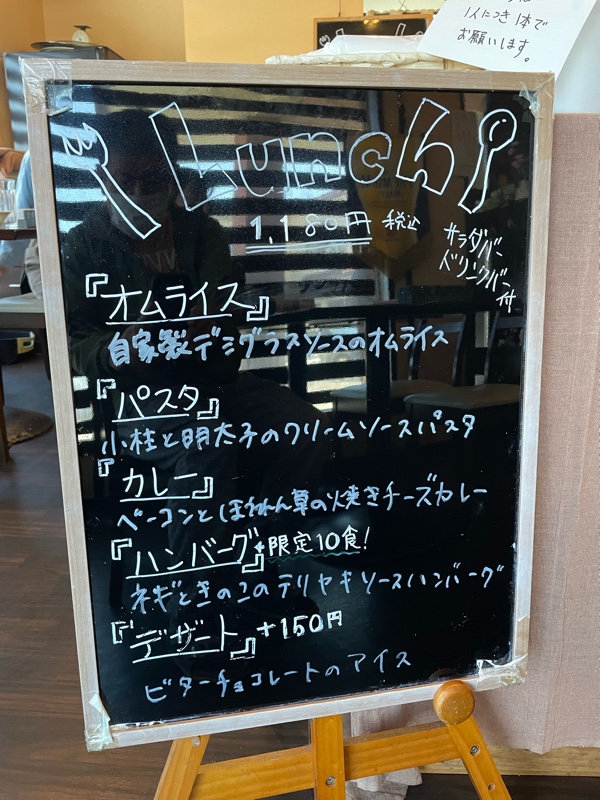 1人につき1本で
お願いします。
Lunch
1,180円 税込
サラダバー
ドリンクバー付
『オムライス』
自家製デミグラスソースのオムライス
『パスタ』
小柱と明太子のクリームソースパスタ
『カレー』
ベーコンとほうれん草の焼きチーズカレー
『ハンバーグ』限定10食!
ネギときのこのテリヤキソースハンバーグ
『デザート』+150円
ビターチョコレートのアイス